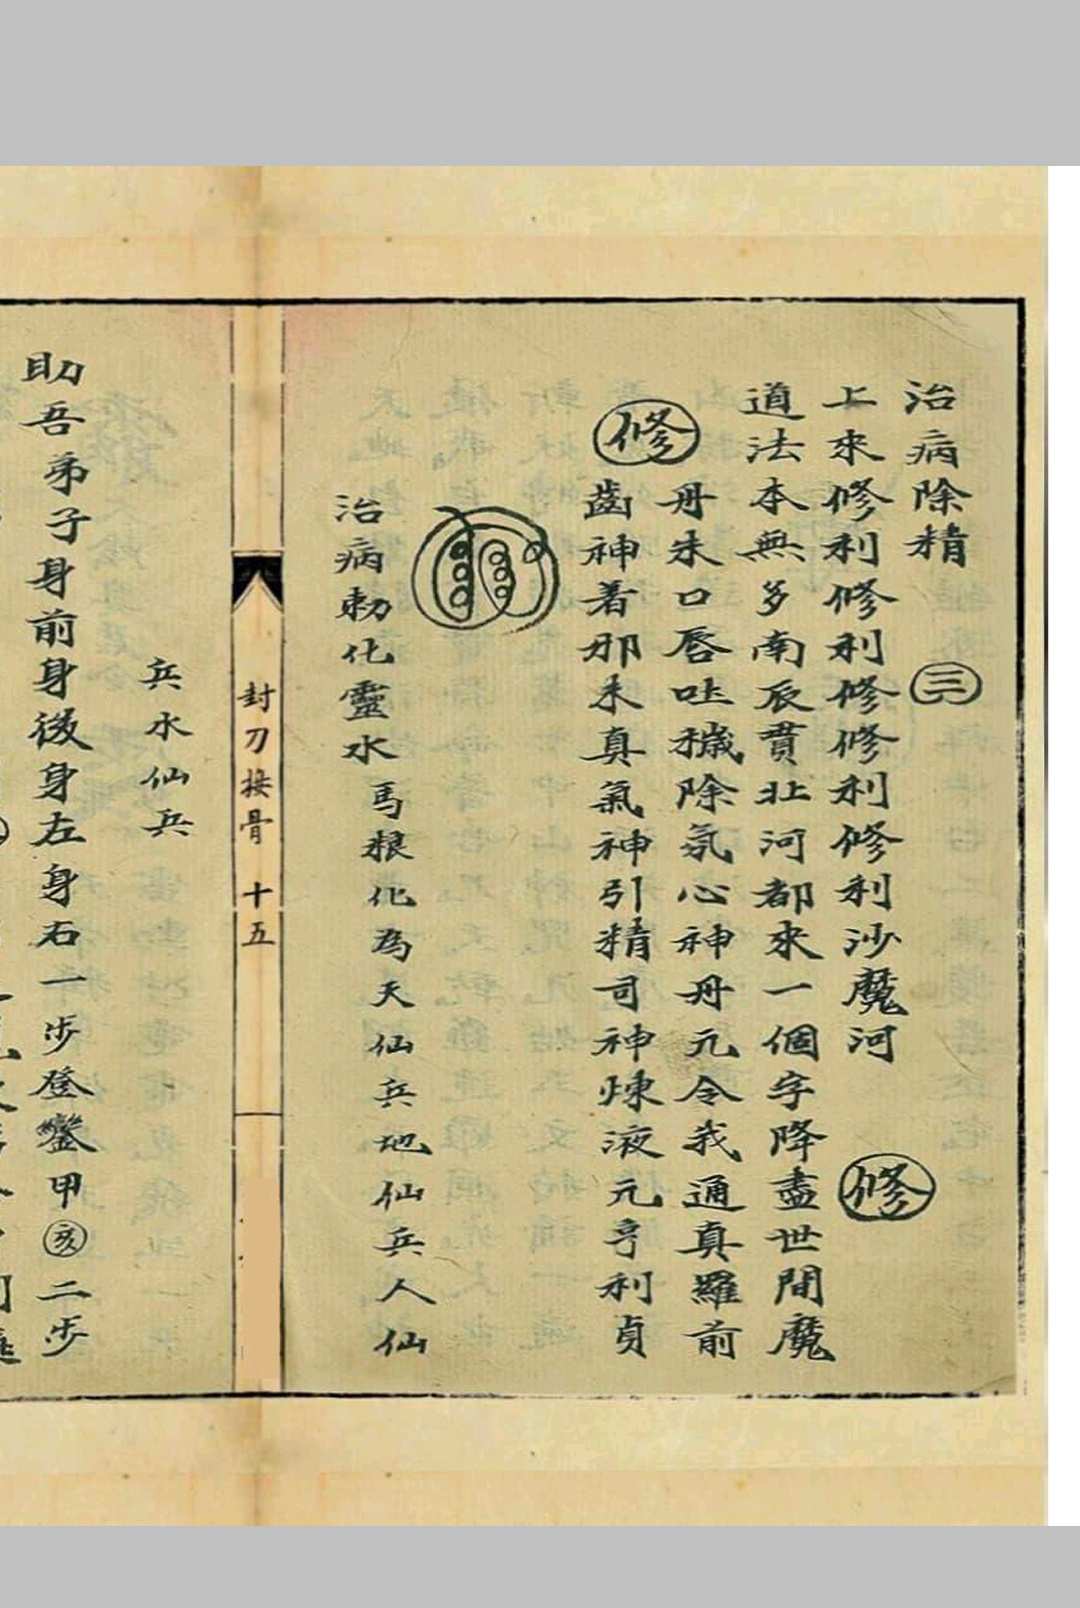 治病除精 三
上來修利修利修修利修利沙魔河 修
道法本無多南辰貫北河都來一個字降盡世間魔
修 丹朱口唇吐穢除氛心神丹元令我通真羅前
齒神着邪未真氣神引精司神煉液元亨利貞
治病勅化靈水馬粮化為天仙兵地仙兵人仙
封刀接骨 十五
兵水仙兵
助吾弟子身前身後身左身右一步登鑾甲亥二步